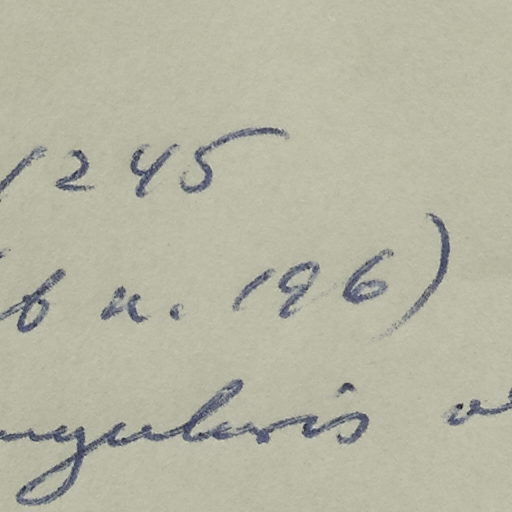 1245
b n. 196)
ngularis